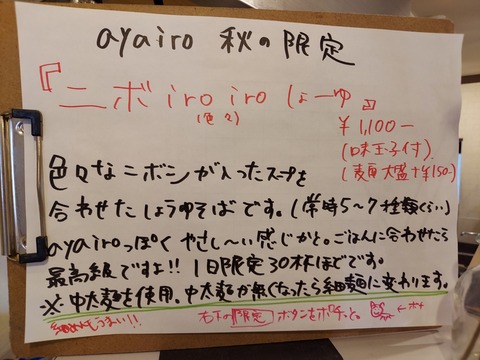 ayairo 秋の限定
『ニボ iro iro しょーゆ』
(色々)
¥1,100-
(味玉子付)
(麺大盛+¥150-)
色々なニボシが入ったスープを
合わせたしょうゆそばです。(常時5〜7種類くらい)
ayairoっぽくやさし〜い感じかと。ごはんに合わせたら
最高級ですよ!! 1日限定30杯ほどです。
※中太麺を使用。中太麺が無くなったら細麺に変わります。
細めんもうまい!!
右下の限定ボタンをポチッと。